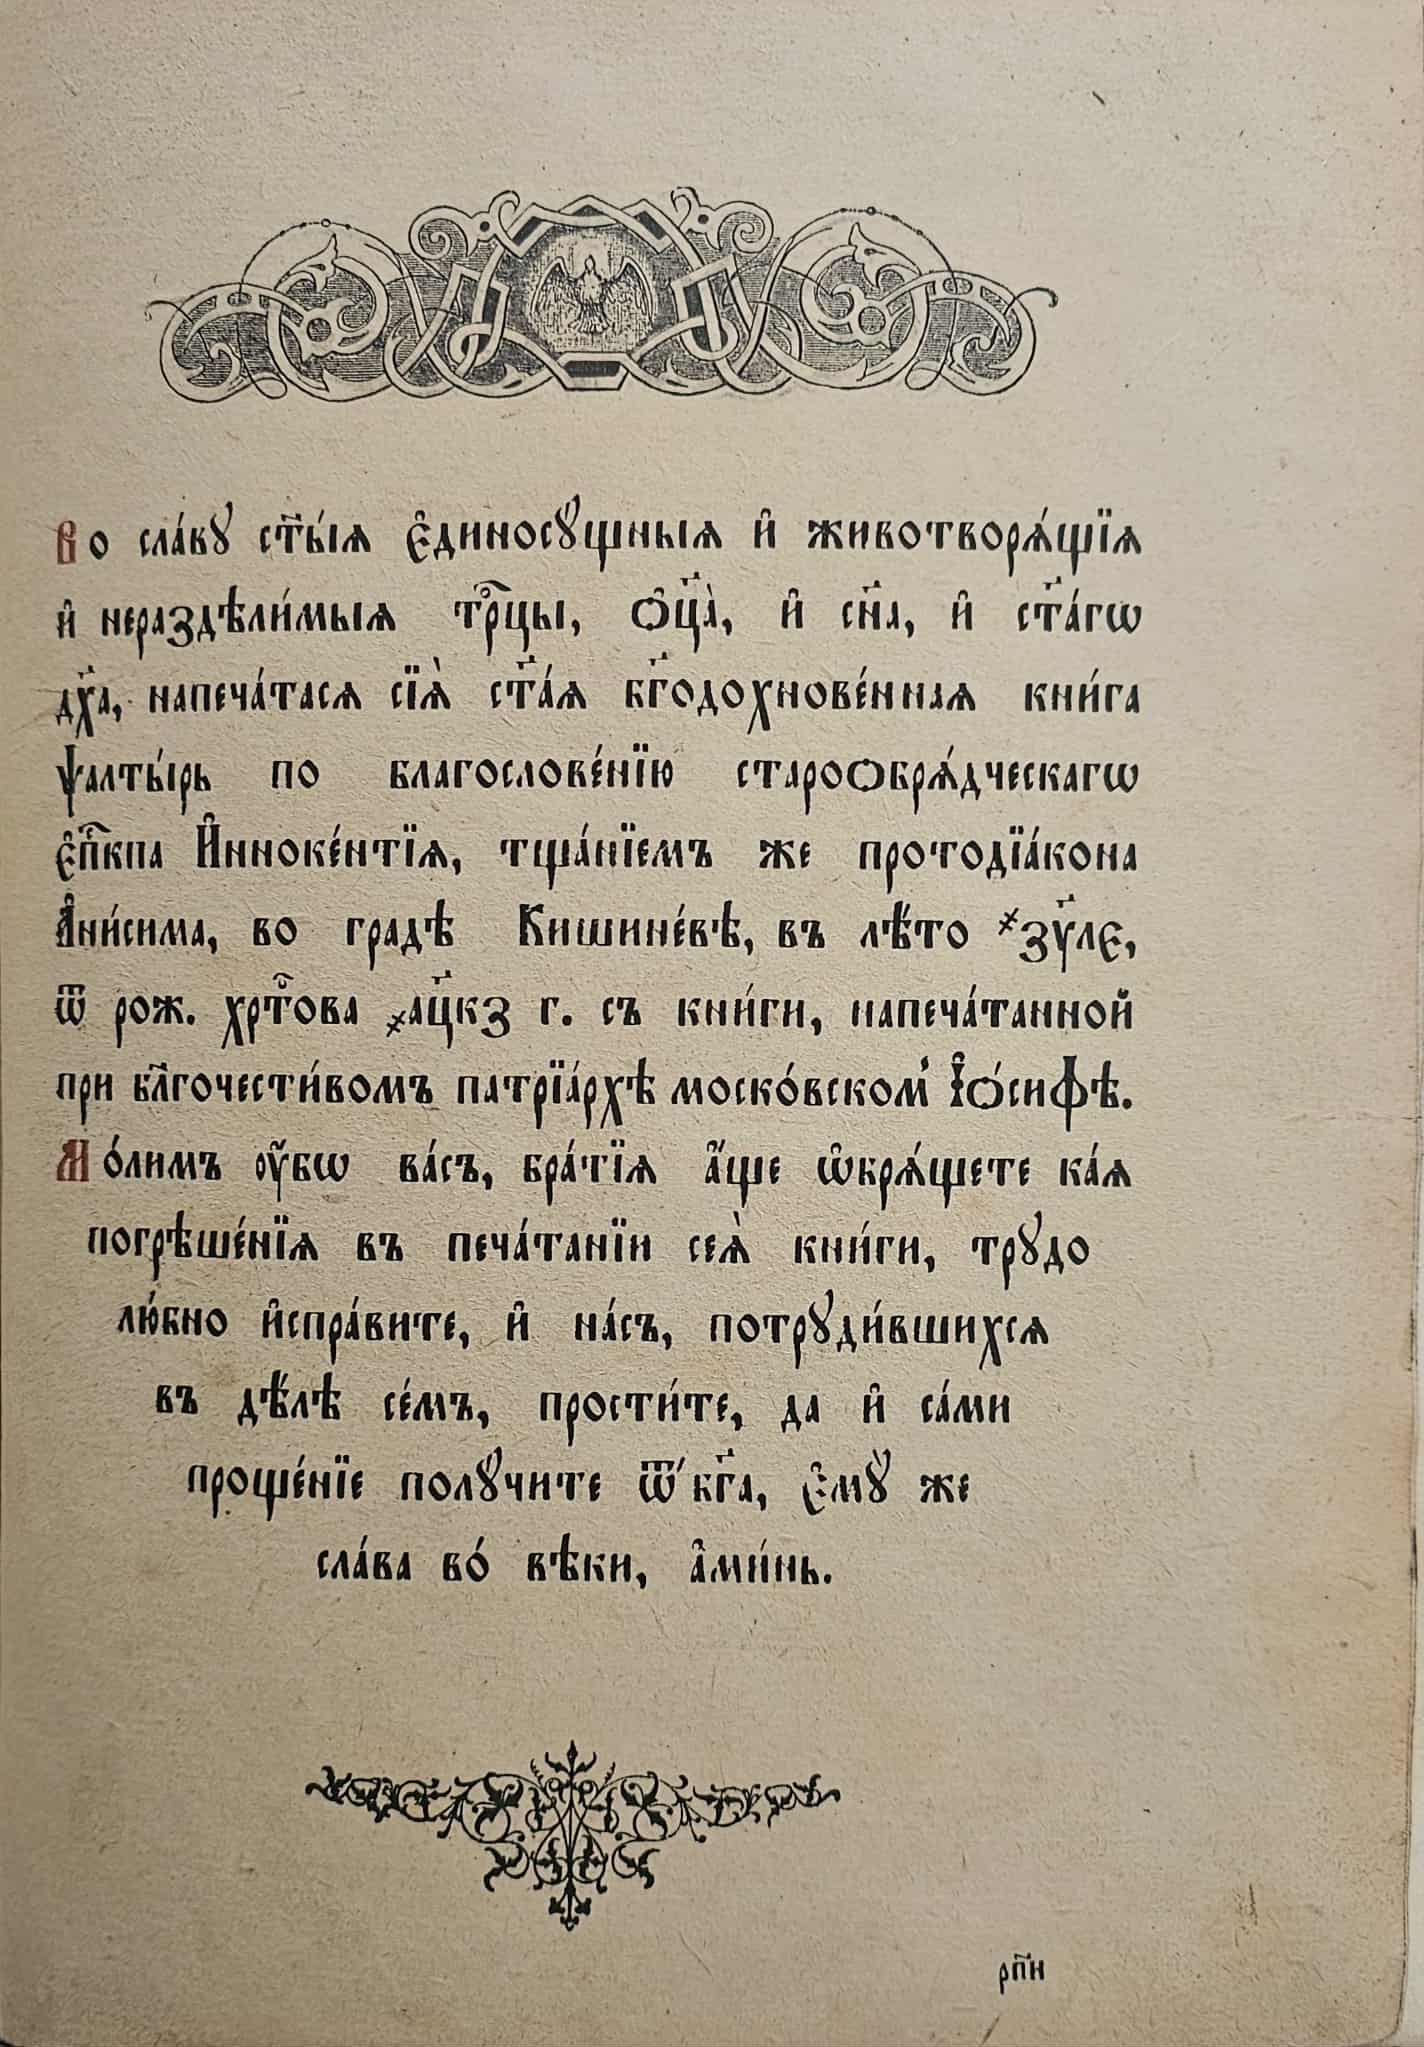 Во сла́вꙋ ст҃ы́ѧ є҆диносꙋ́щныѧ и҆ животворѧ́щїѧ
и҆ нераздѣли́мыѧ трⷪ҇цы, ѻ҆ц҃а̀, и҆ сн҃а, и҆ ст҃а́гѡ
дх҃а, напеча́тасѧ сїѧ̀ ст҃а́ѧ бг҃одохнове́ннаѧ кни́га
ѱалты́рь по благослове́нїю староѻбрѧ́дческагѡ
є҆пⷭ҇кпа И҆нноке́нтїѧ, тща́нїемъ же протодїа́кона
А҆ни́сима, во градѣ Кишине́вѣ, въ лѣ́то ҂зу҃ле,
ѿ рож. хрⷭ҇това ҂ац҃кз г. съ кни́ги, напеча́танной
при бл҃гочести́вомъ патрїа́рхѣ моско́вском̾ І҆ѻ́сифѣ.
Мо́лимъ ᲂу҆́бѡ ва́съ, бра́тїѧ а҆́ще ѡ҆крѧ́щете ка́ѧ
погрѣше́нїѧ въ печа́танїи сеѧ̀ кни́ги, трꙋдо
лю́бно и҆спра́вите, и҆ на́съ, потрꙋди́вшихсѧ
въ дѣ́лѣ се́мъ, прости́те, да и҆ са́ми
проще́нїе полꙋ́чите ѿ бг҃а, є҆мꙋ̀ же
сла́ва во́ вѣки, а҆ми́нь.
рп҃и